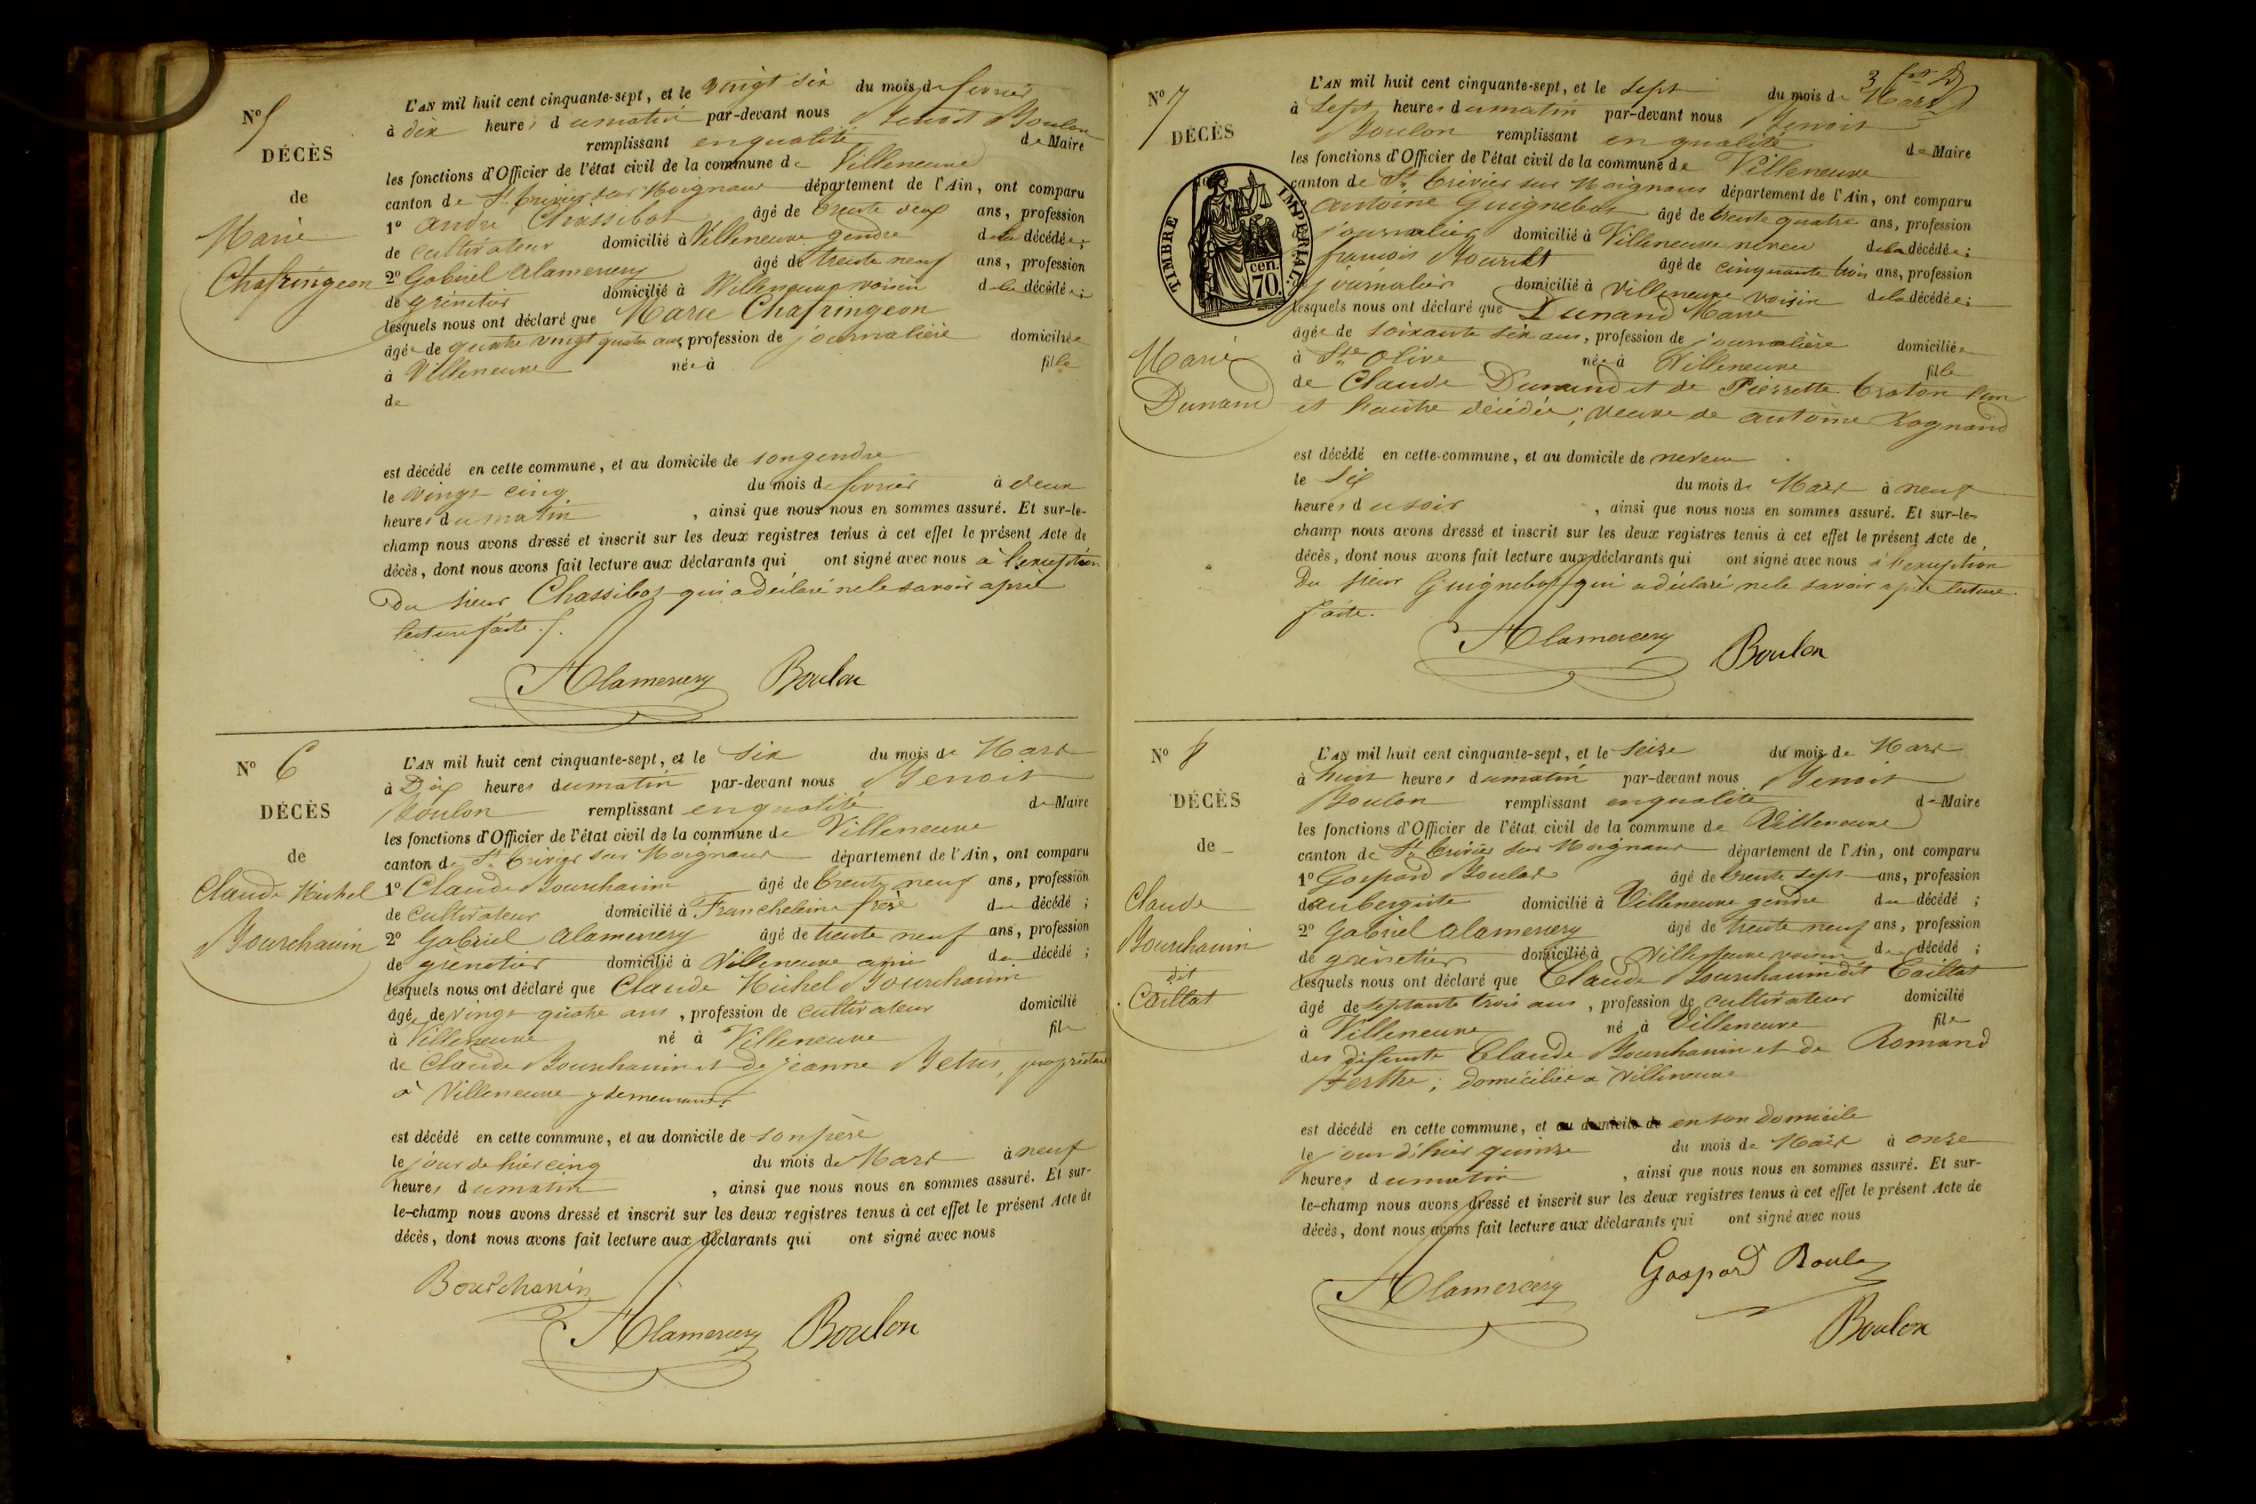 N° 5
DÉCÈS
de
Marie
Chafringeon
L'AN mil huit cent cinquante-sept, et le vingt six du mois de fevrier
à dix heures du matin par-devant nous Benoit Boulon
remplissant en qualité de Maire
les fonctions d'Officier de l'état civil de la commune de Villeneuve
canton de St Trivier sur Moignans département de l'Ain, ont comparu
1° andre Chassibot âgé de trente deux ans, profession
de cultivateur domicilié à Villeneuve gendre de la décédée;
2° Gabriel alamercery âgé de trente neuf ans, profession
de grenetier domicilié à Villeneuve voisin de la décédée;
lesquels nous ont déclaré que Marie Chafringeon
âgée de quatre vingt quatre ans, profession de journalière domiciliée
à Villeneuve née à fille
de
est décédé en cette commune, et au domicile de son gendre
le vingt cinq du mois de fevrier à deux
heures du matin, ainsi que nous nous en sommes assuré. Et sur-le-
champ nous avons dressé et inscrit sur les deux registres tenus à cet effet le présent Acte de
décès, dont nous avons fait lecture aux déclarants qui ont signé avec nous à l'exception
du sieur Chassibot qui a déclaré ne le savoir après
lecture faite.
Alamercery Boulon
N° 6
DÉCÈS
de
Claude Michel
Bourchanin
L'AN mil huit cent cinquante-sept, et le six du mois de Mars
à Dix heures du matin par-devant nous Benoit
Boulon remplissant en qualité de Maire
les fonctions d'Officier de l'état civil de la commune de Villeneuve
canton de St Trivier sur Moignans département de l'Ain, ont comparu
1° Claude Bourchanin âgé de trente neuf ans, profession
de cultivateur domicilié à Francheleins frère du décédé;
2° Gabriel alamercery âgé de trente neuf ans, profession
de grenetier domicilié à Villeneuve ami du décédé;
lesquels nous ont déclaré que Claude Michel Bourchanin
âgé de vingt quatre ans, profession de cultivateur domicilié
à Villeneuve né à Villeneuve fils
de Claude Bourchanin et de jeanne Betus, propriétaires
à Villeneuve y demeurant
est décédé en cette commune, et au domicile de son père
le jour de hier cinq du mois de Mars à neuf
heures du matin, ainsi que nous nous en sommes assuré. Et sur-
le-champ nous avons dressé et inscrit sur les deux registres tenus à cet effet le présent Acte de
décès, dont nous avons fait lecture aux déclarants qui ont signé avec nous
Bourchanin
Alamercery Boulon
3
N° 7
DÉCÈS
TIMBRE IMPERIAL
70 cen.
Marie
Dunand
L'AN mil huit cent cinquante-sept, et le sept du mois de Mars
à Sept heures du matin par-devant nous Benoit
Boulon remplissant en qualité de Maire
les fonctions d'Officier de l'état civil de la commune de Villeneuve
canton de St Trivier sur Moignans département de l'Ain, ont comparu
antoine Guignebot âgé de trente quatre ans, profession
journalier domicilié à Villeneuve neveu de la décédée;
francois âgé de cinquante trois ans, profession
journalier domicilié à Villeneuve voisin de la décédée;
lesquels nous ont déclaré que Dunand Marie
âgée de soixante six ans, profession de journalière domiciliée
à Ste Olive née à Villeneuve fille
de Claude Dunand et de Pierrette Craton l'un
et l'autre décédés; veuve de antoine Rognard
est décédé en cette commune, et au domicile de neveu
le six du mois de Mars à neuf
heures du soir, ainsi que nous nous en sommes assuré. Et sur-le-
champ nous avons dressé et inscrit sur les deux registres tenus à cet effet le présent Acte de
décès, dont nous avons fait lecture aux déclarants qui ont signé avec nous à l'exception
du sieur Guignebot qui a déclaré ne le savoir après lecture
faite.
Alamercery Boulon
N° 8
DÉCÈS
de
Claude
Bourchanin
dit
Caillat
L'AN mil huit cent cinquante-sept, et le seize du mois de Mars
à huit heures du matin par-devant nous Benoit
Boulon remplissant en qualité de Maire
les fonctions d'Officier de l'état civil de la commune de Villeneuve
canton de St Trivier sur Moignans département de l'Ain, ont comparu
1° Gaspard Boulas âgé de trente sept ans, profession
d'aubergiste domicilié à Villeneuve gendre du décédé;
2° Gabriel alamercery âgé de trente neuf ans, profession
de grenetier domicilié à Villeneuve voisin du décédé;
lesquels nous ont déclaré que Claude Bourchanin dit Caillat
âgé de septante trois ans, profession de cultivateur domicilié
à Villeneuve né à Villeneuve fils
des défunts Claude Bourchanin et de Romand
Berthe; domiciliés à Villeneuve
est décédé en cette commune, et au domicile de en son domicile
le jour d'hier quinze du mois de Mars à onze
heures du matin, ainsi que nous nous en sommes assuré. Et sur-
le-champ nous avons dressé et inscrit sur les deux registres tenus à cet effet le présent Acte de
décès, dont nous avons fait lecture aux déclarants qui ont signé avec nous
Alamercery Gaspard Boulas
Boulon